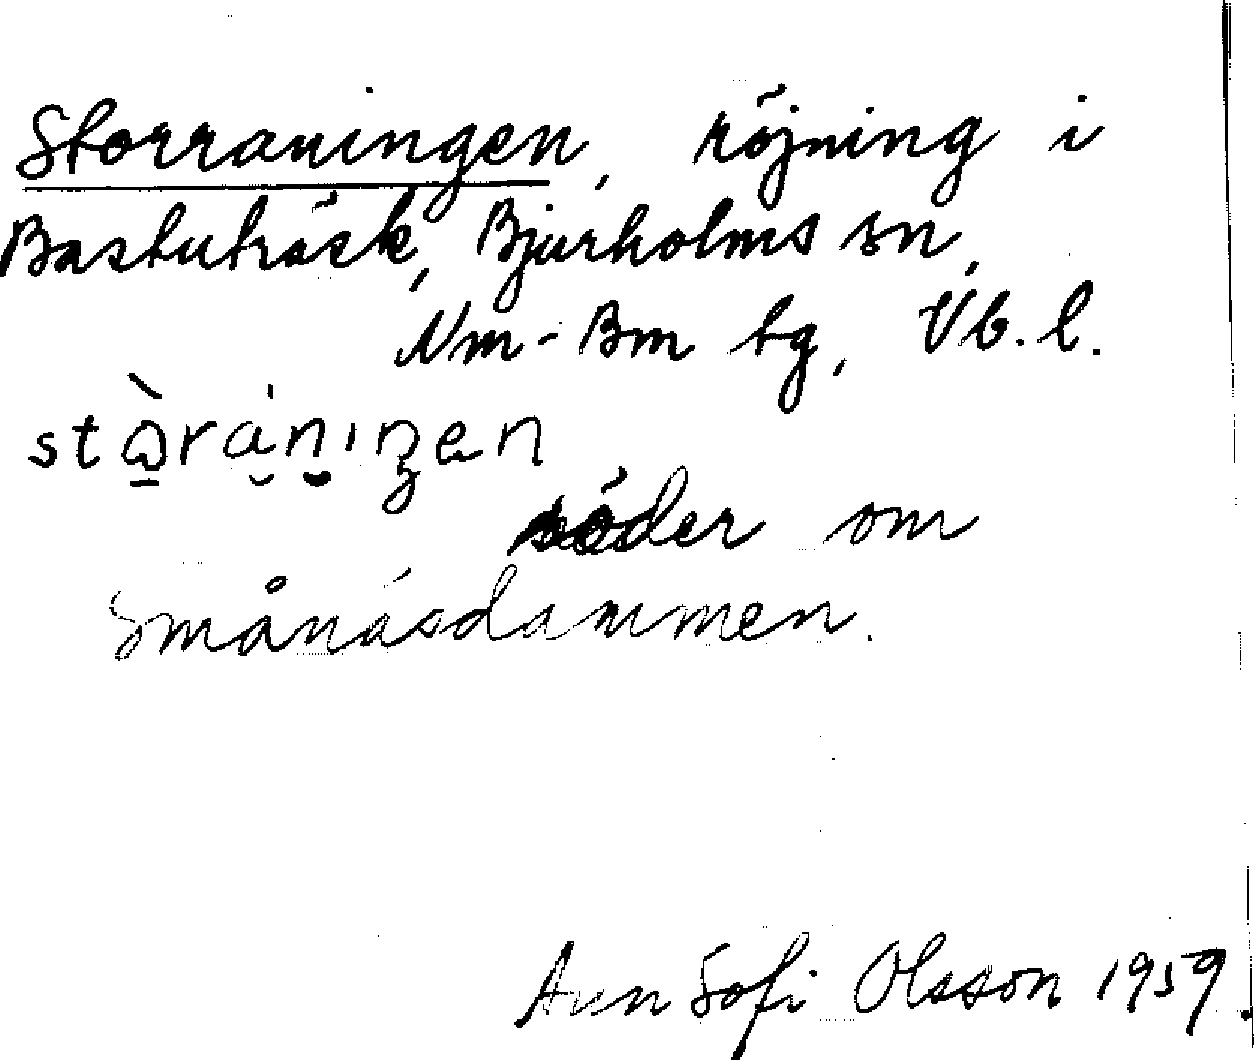 Storraningen, röjning i
Bastuträsk, Bjurholms sn,
Nm-Bm tg, Vb. l.
söder om
Smånäsdammen.
Ann Sofi Olsson 1959.